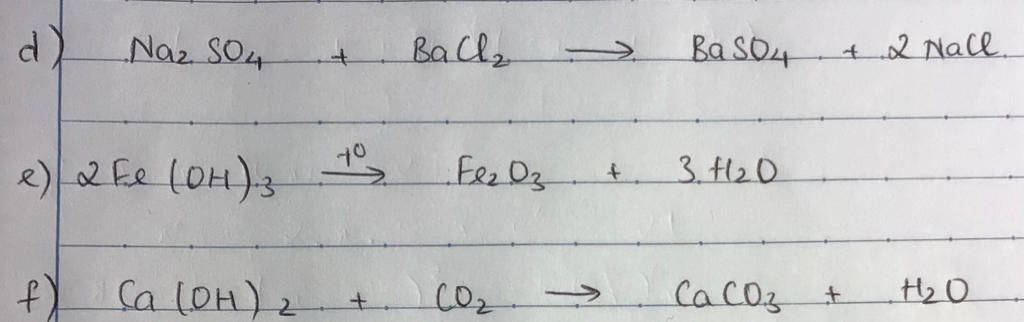 d) Na₂SO₄ + BaCl₂ → BaSO₄ + 2 NaCl
e) 2Fe(OH)₃ t⁰→ Fe₂O₃ + 3H₂O
f) Ca(OH)₂ + CO₂ → CaCO₃ + H₂O